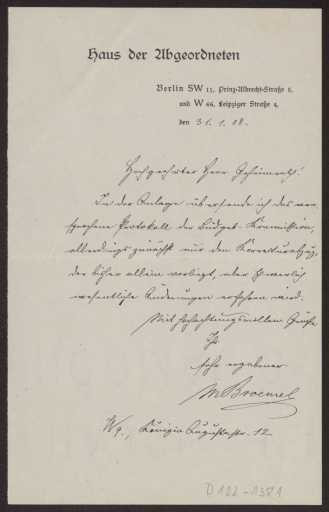 Haus der Abgeordneten
Berlin SW 11, Prinz-Albrecht-Straße 5.
und W 66, Leipziger Straße 4.
den 31. 1. 08.
Hochgeehrter Herr Geheimrath!
In der Anlage übersende ich das ver-
sprochene Protokoll der Budget-Kommission,
allerdings zunächst nur den Korrekturabzug,
der bisher allein vorliegt, aber schwerlich
wesentliche Änderungen erfahren wird.
Mit hochachtungsvollem Gruße
Ihr
sehr ergebener
M Broemel
W 9., Königin Augustastr. 12
D 122-1381